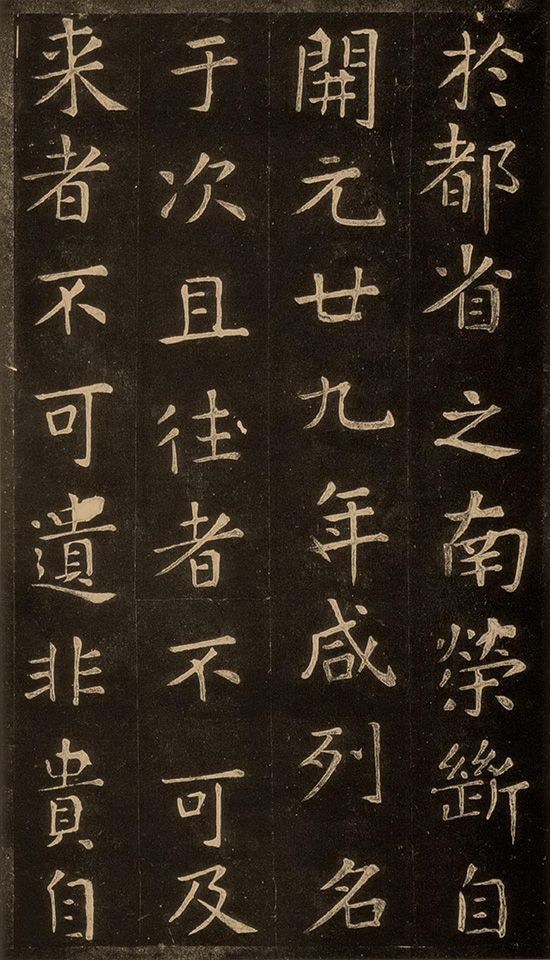 於都省之南榮斷自
開元廿九年咸列名
于次且往者不可及
来者不可遺非貴自